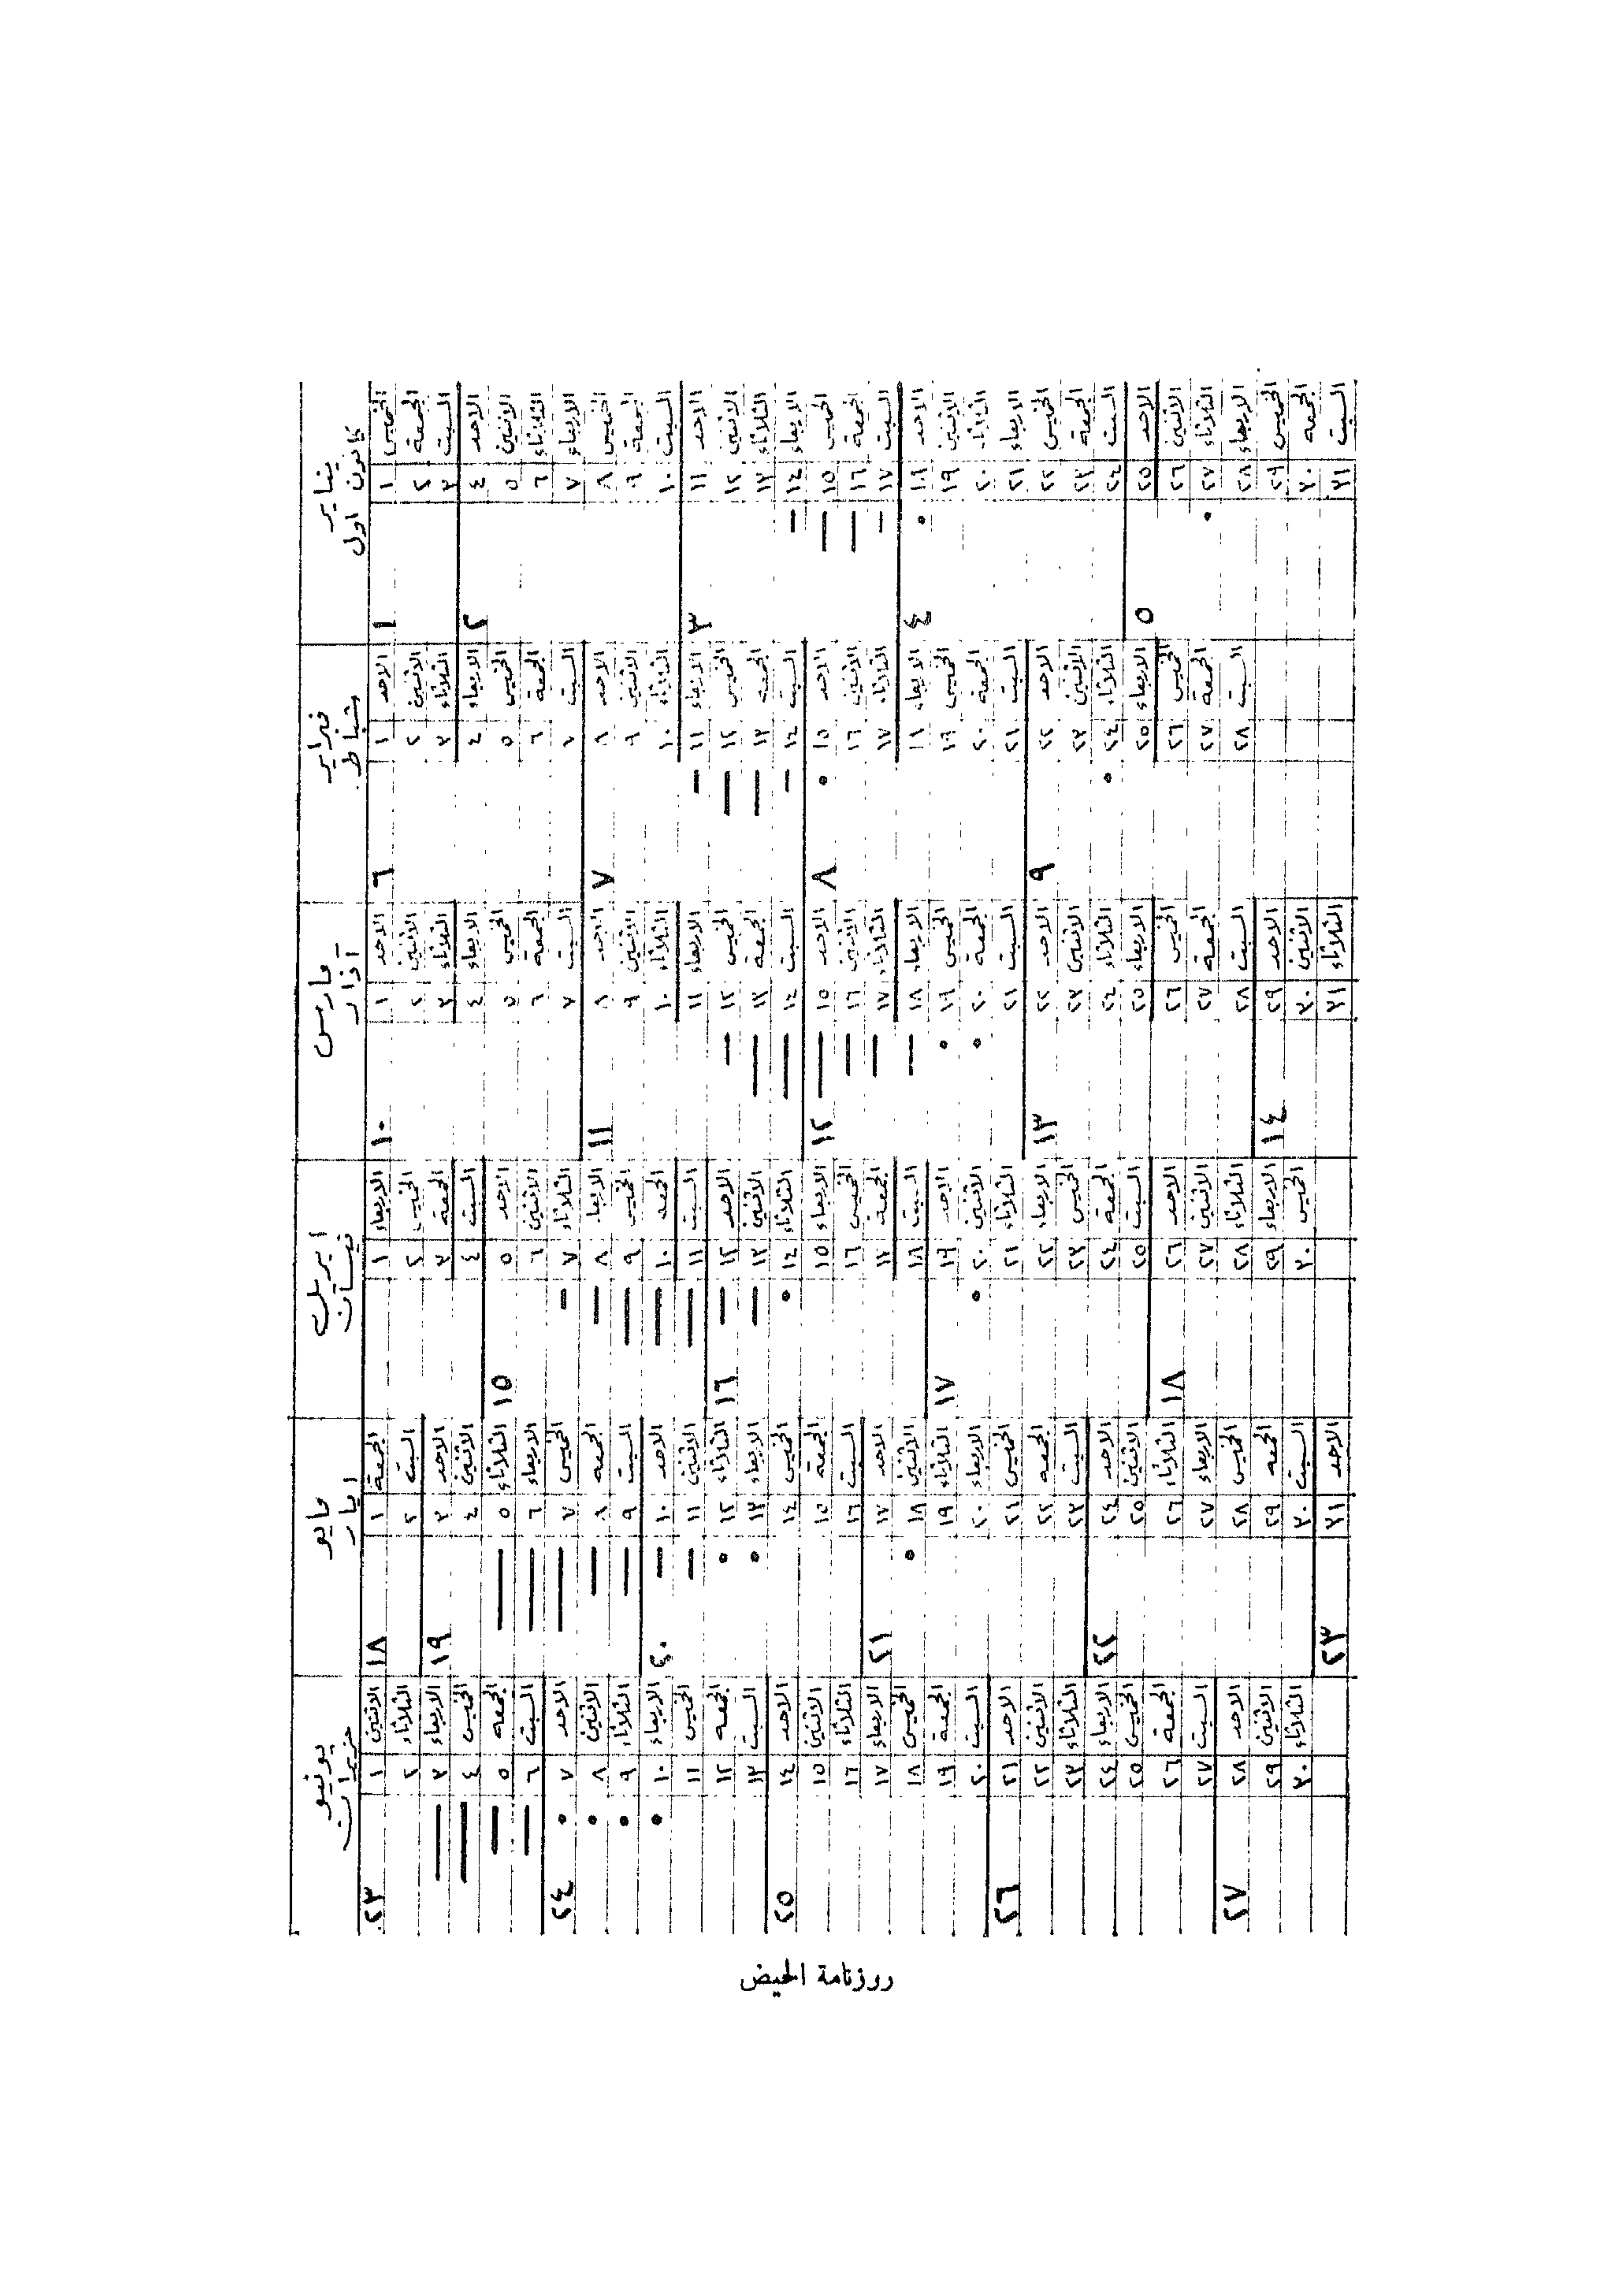 يناير
كانون اول
الخميس ١ ١
الجمعة ٢
السبت ٣
الاحد ٤ ٢
الاثنين ٥
الثلاثاء ٦
الاربعاء ٧
الخميس ٨
الجمعة ٩
السبت ١٠
الاحد ١١ ٣
الاثنين ١٢
الثلاثاء ١٣
الاربعاء ١٤
الخميس ١٥
الجمعة ١٦
السبت ١٧
الاحد ١٨ ٤
الاثنين ١٩
الثلاثاء ٢٠
الاربعاء ٢١
الخميس ٢٢
الجمعة ٢٣
السبت ٢٤
الاحد ٢٥ ٥
الاثنين ٢٦
الثلاثاء ٢٧
الاربعاء ٢٨
الخميس ٢٩
الجمعة ٣٠
السبت ٣١
فبراير
شباط
الاحد ١ ٦
الاثنين ٢
الثلاثاء ٣
الاربعاء ٤
الخميس ٥
الجمعة ٦
السبت ٧
الاحد ٨ ٧
الاثنين ٩
الثلاثاء ١٠
الاربعاء ١١
الخميس ١٢
الجمعة ١٣
السبت ١٤
الاحد ١٥ ٨
الاثنين ١٦
الثلاثاء ١٧
الاربعاء ١٨
الخميس ١٩
الجمعة ٢٠
السبت ٢١
الاحد ٢٢ ٩
الاثنين ٢٣
الثلاثاء ٢٤
الاربعاء ٢٥
الخميس ٢٦
الجمعة ٢٧
السبت ٢٨
مارس
آذار
الاحد ١ ١٠
الاثنين ٢
الثلاثاء ٣
الاربعاء ٤
الخميس ٥
الجمعة ٦
السبت ٧
الاحد ٨ ١١
الاثنين ٩
الثلاثاء ١٠
الاربعاء ١١
الخميس ١٢
الجمعة ١٣
السبت ١٤
الاحد ١٥ ١٢
الاثنين ١٦
الثلاثاء ١٧
الاربعاء ١٨
الخميس ١٩
الجمعة ٢٠
السبت ٢١
الاحد ٢٢ ١٣
الاثنين ٢٣
الثلاثاء ٢٤
الاربعاء ٢٥
الخميس ٢٦
الجمعة ٢٧
السبت ٢٨
الاحد ٢٩ ١٤
الاثنين ٣٠
الثلاثاء ٣١
ابريل
نيسان
الاربعاء ١
الخميس ٢
الجمعة ٣
السبت ٤
الاحد ٥ ١٥
الاثنين ٦
الثلاثاء ٧
الاربعاء ٨
الخميس ٩
الجمعه ١٠
السبت ١١
الاحد ١٢ ١٦
الاثنين ١٣
الثلاثاء ١٤
الاربعاء ١٥
الخميس ١٦
الجمعة ١٧
السبت ١٨
الاحد ١٩ ١٧
الاثنين ٢٠
الثلاثاء ٢١
الاربعاء ٢٢
الخميس ٢٣
الجمعة ٢٤
السبت ٢٥
الاحد ٢٦ ١٨
الاثنين ٢٧
الثلاثاء ٢٨
الاربعاء ٢٩
الخميس ٣٠
مايو
ايار
الجمعة ١ ١٨
السبت ٢
الاحد ٣ ١٩
الاثنين ٤
الثلاثاء ٥
الاربعاء ٦
الخميس ٧
الجمعه ٨
السبت ٩
الاحد ١٠ ٢٠
الاثنين ١١
الثلاثاء ١٢
الاربعاء ١٣
الخميس ١٤
الجمعة ١٥
السبت ١٦
الاحد ١٧ ٢١
الاثنين ١٨
الثلاثاء ١٩
الاربعاء ٢٠
الخميس ٢١
الجمعه ٢٢
السبت ٢٣
الاحد ٢٤ ٢٢
الاثنين ٢٥
الثلاثاء ٢٦
الاربعاء ٢٧
الخميس ٢٨
الجمعه ٢٩
السبت ٣٠
الاحد ٣١ ٢٣
يونيو
حزيران
الاثنين ١ ٢٣
الثلاثاء ٢
الاربعاء ٣
الخميس ٤
الجمعه ٥
السبت ٦
الاحد ٧ ٢٤
الاثنين ٨
الثلاثاء ٩
الاربعاء ١٠
الخميس ١١
الجمعه ١٢
السبت ١٣
الاحد ١٤ ٢٥
الاثنين ١٥
الثلاثاء ١٦
الاربعاء ١٧
الخميس ١٨
الجمعة ١٩
السبت ٢٠
الاحد ٢١ ٢٦
الاثنين ٢٢
الثلاثاء ٢٣
الاربعاء ٢٤
الخميس ٢٥
الجمعة ٢٦
السبت ٢٧
الاحد ٢٨ ٢٧
الاثنين ٢٩
الثلاثاء ٣٠
روزنامة الحيض